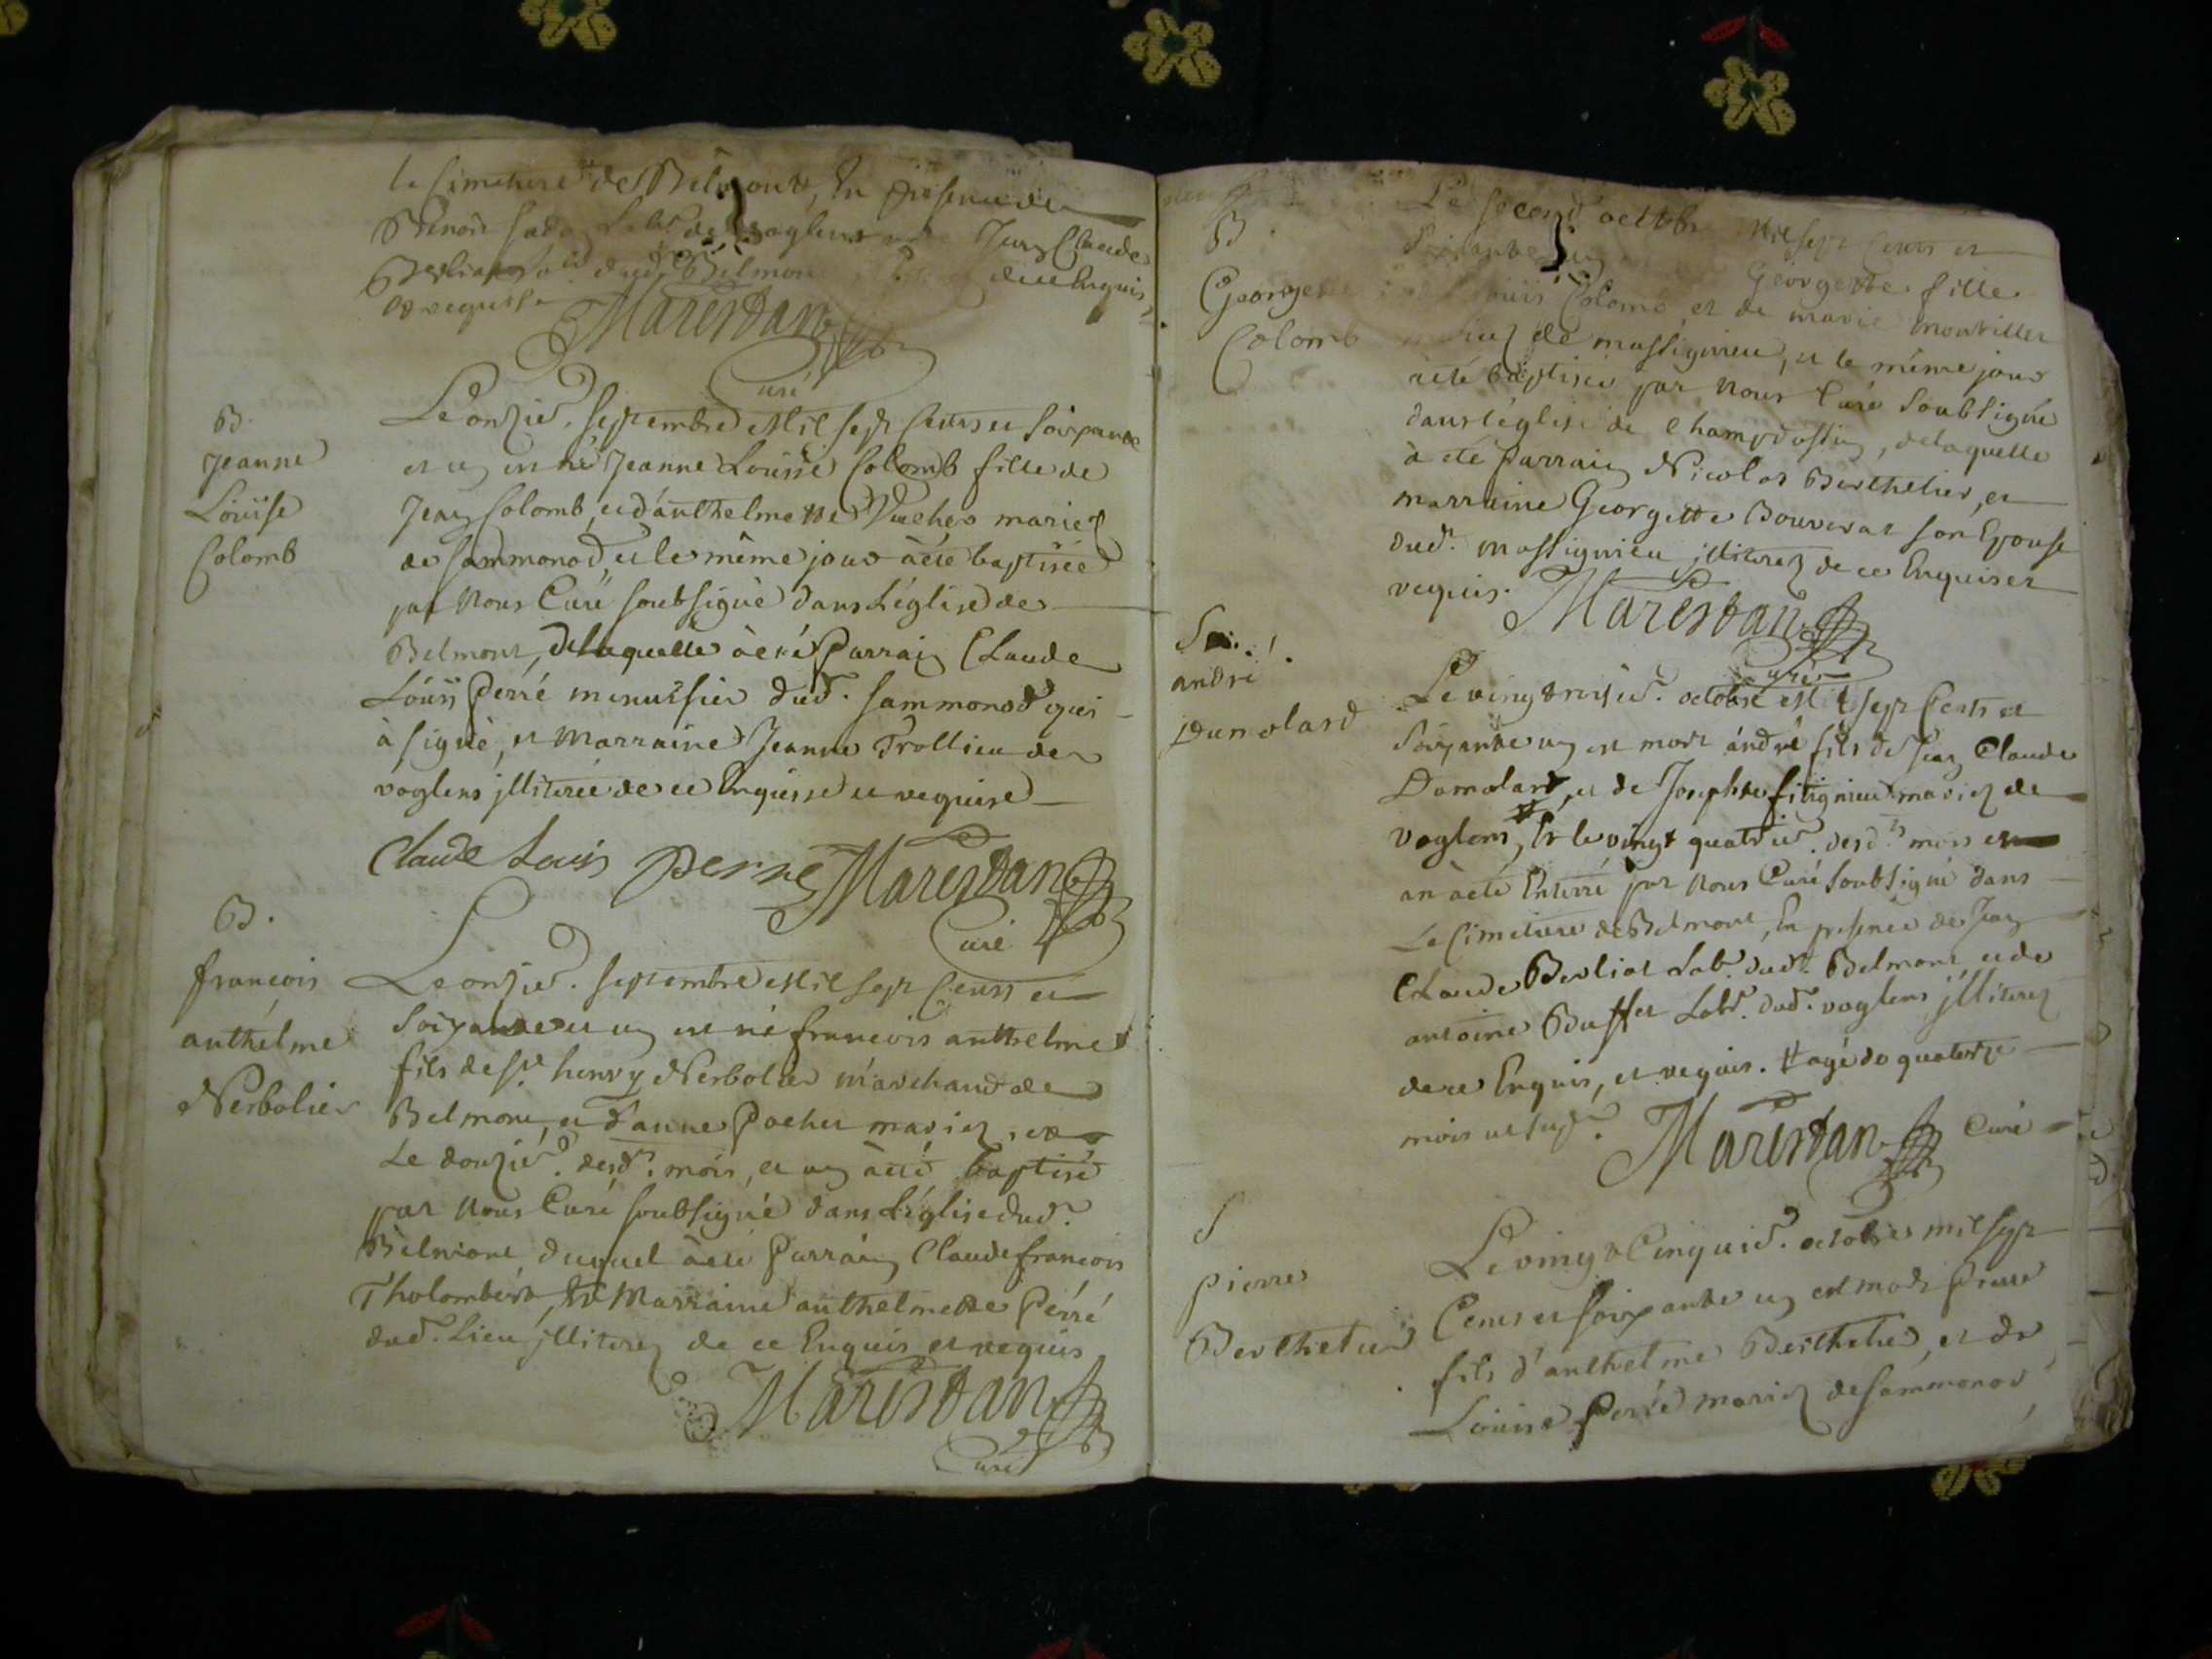 le Cimetiere de Belmont, En presence de
Benoit Lab.r de voglens Jean Claude
Berliat Lab.r dud. Belmon de ce Enquis
et requis
Marestan
Curé
B.
Jeanne
Loüise
Colomb
Le onzie. septembre Mil sept Cents et soixante
et un est né Jeanne Louise Colomb fille de
Jean Colomb, et d'anthelmette Vucher mariez
de sammonod, et le même jour à été baptisée
par Nous Curé soubsigné dans L'église de
Belmont, de laquelle à eté Parrain Claude
Loüis Perré menuisier dud. sammonod qui
à signé, et Marraine Jeanne Trollieu de
voglens jlliterée de ce Enquise et requise
Claude Louis perré Marestan
Curé
B.
francois
anthelme
Nerbolier
Le onzie. septembre Mil sept Cents et
soixante et un est né francois anthelme
fils de s.r henry Nerbolier marchand de
Belmont, et d'anne Pochet mariez, et
Le douzie. desd. mois, et an àété baptisé
par Nous Curé soubsigné dans L'église dud.
Belmont, duquel àeté Parrain Claude francois
Tholombert, Et Marraine anthelmette Perré
dud. Lieu, jlliterez de ce Enquis et requis
Marestan
Curé
B.
Georgette
Colomb
Le second octobre Mil sept Cents et
soixante un Georgette fille
Loüis Colomb, et de marie Montillet
mariez de massignieu, et le même jour
àeté baptisée par Nous Curé soubsigné
dans l'église de Champdossin, de laquelle
à eté Parrain Nicolas Berthelier, et
marraine Georgette Bouverat son Epouse
dud. massignieu jlliterez de ce Enquis et
requis. Marestan
Curé
S.
andré
Dumolard
Le vingtroisie. octobre Mil sept Cents et
soixante un est mort andré fils de Jean Claude
Domolard, et de Josephte fitignieu mariez de
voglens, Et le vingt quatrie. desd. mois et
an àeté Enterré par Nous Curé soubsigné dans
Le Cimetiere de Belmont, En presence de Jean
Claude Berliat Lab. dud. Belmont, et de
antoine Buffet Lab. dud. voglens jlliterez
de ce Enquis, et requis. # agé de quatorze
mois Marestan Curé
S
pierre
Berthelier
Le vingt Cinquie. octobre mil sept
Cents et soixante un est mort Pierre
fils d'anthelme Berthelier, et de
Loüise Perré mariez de sammonod